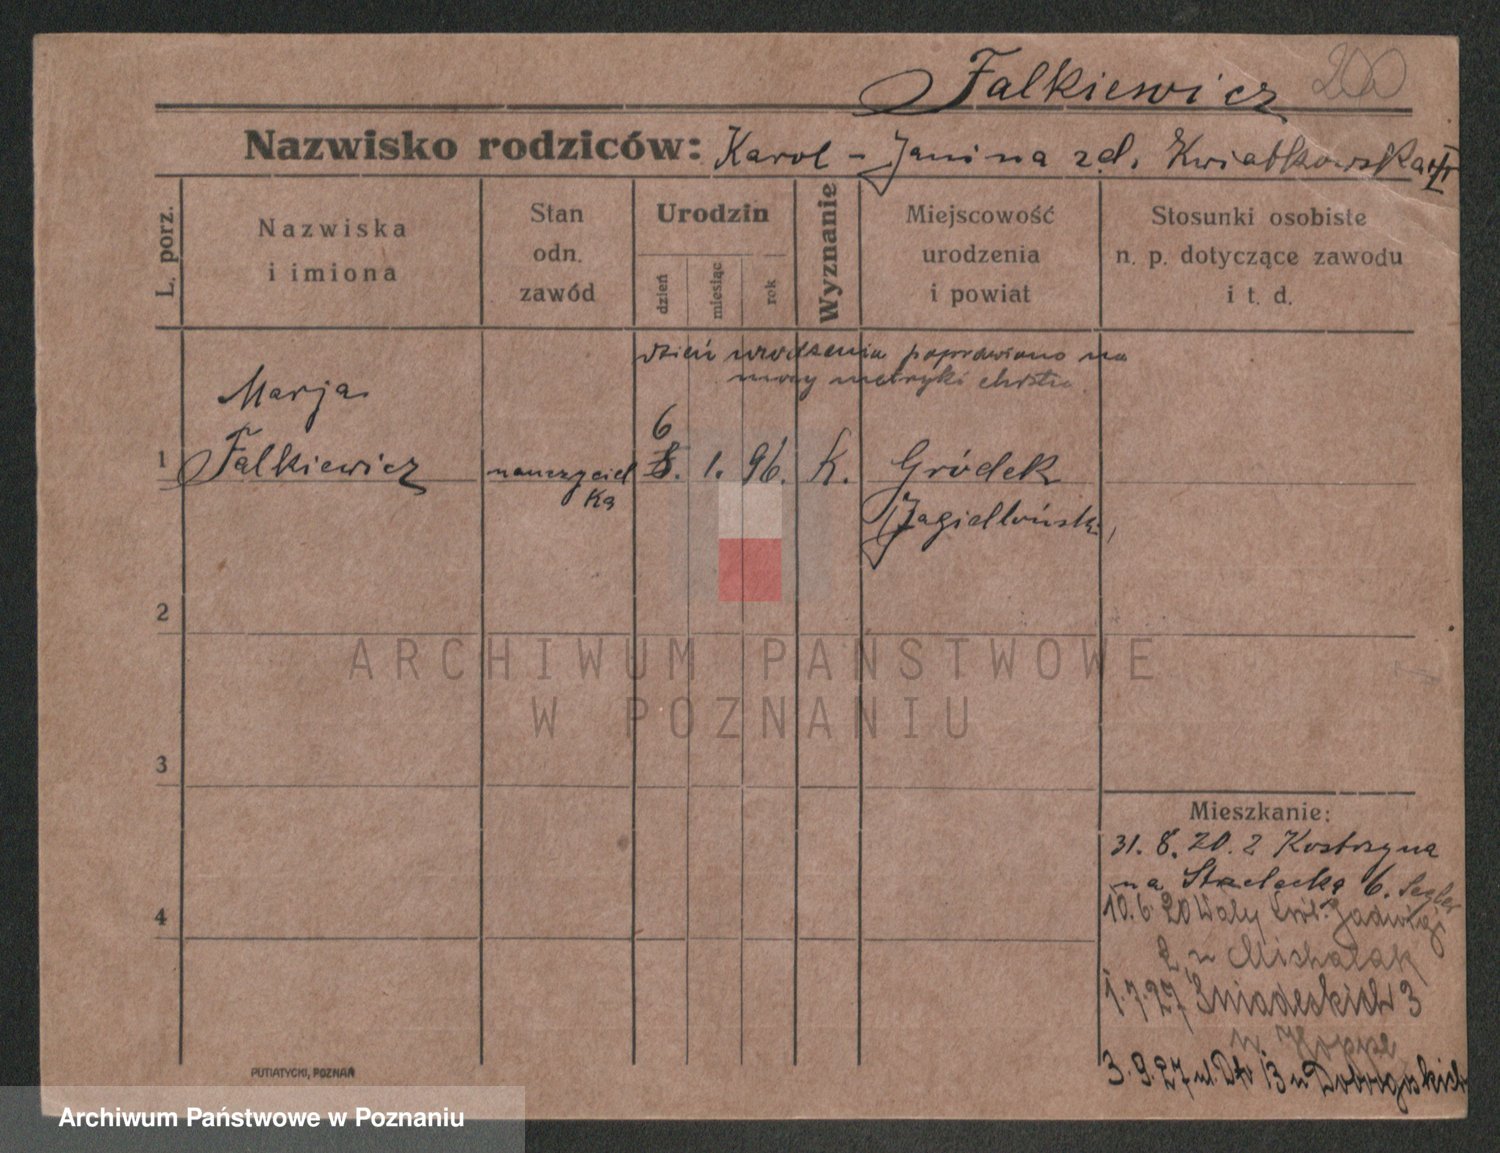 Falkiewicz 200
Nazwisko rodziców: Karol - Janina zd. Kwiatkowska
L. porz.
Nazwiska
i imiona
Stan
odn.
zawód
Urodzin
dzień
miesiąc
rok
Wyznanie
Miejscowość
urodzenia
i powiat
Stosunki osobiste
n. p. dotyczące zawodu
i t. d.
dzień urodzenia poprawiono na
mocy metryki chrztu
Marja
6
1 Falkiewicz nauczyciel 8. 1. 96. K. Gródek
ka Jagielloński
2
3
4
ARCHIWUM PAŃSTWOWE
W POZNANIU
Mieszkanie:
31. 8. 20. z Kostrzyna
na Strzelecką 6.
10.6 20 Wały Jadwigi
2 u Michalak
1.7.27 Śniadeckich 3
u Hoppe
3.9.27 13 u
PUTIATYCKI, POZNAŃ
Archiwum Państwowe w Poznaniu